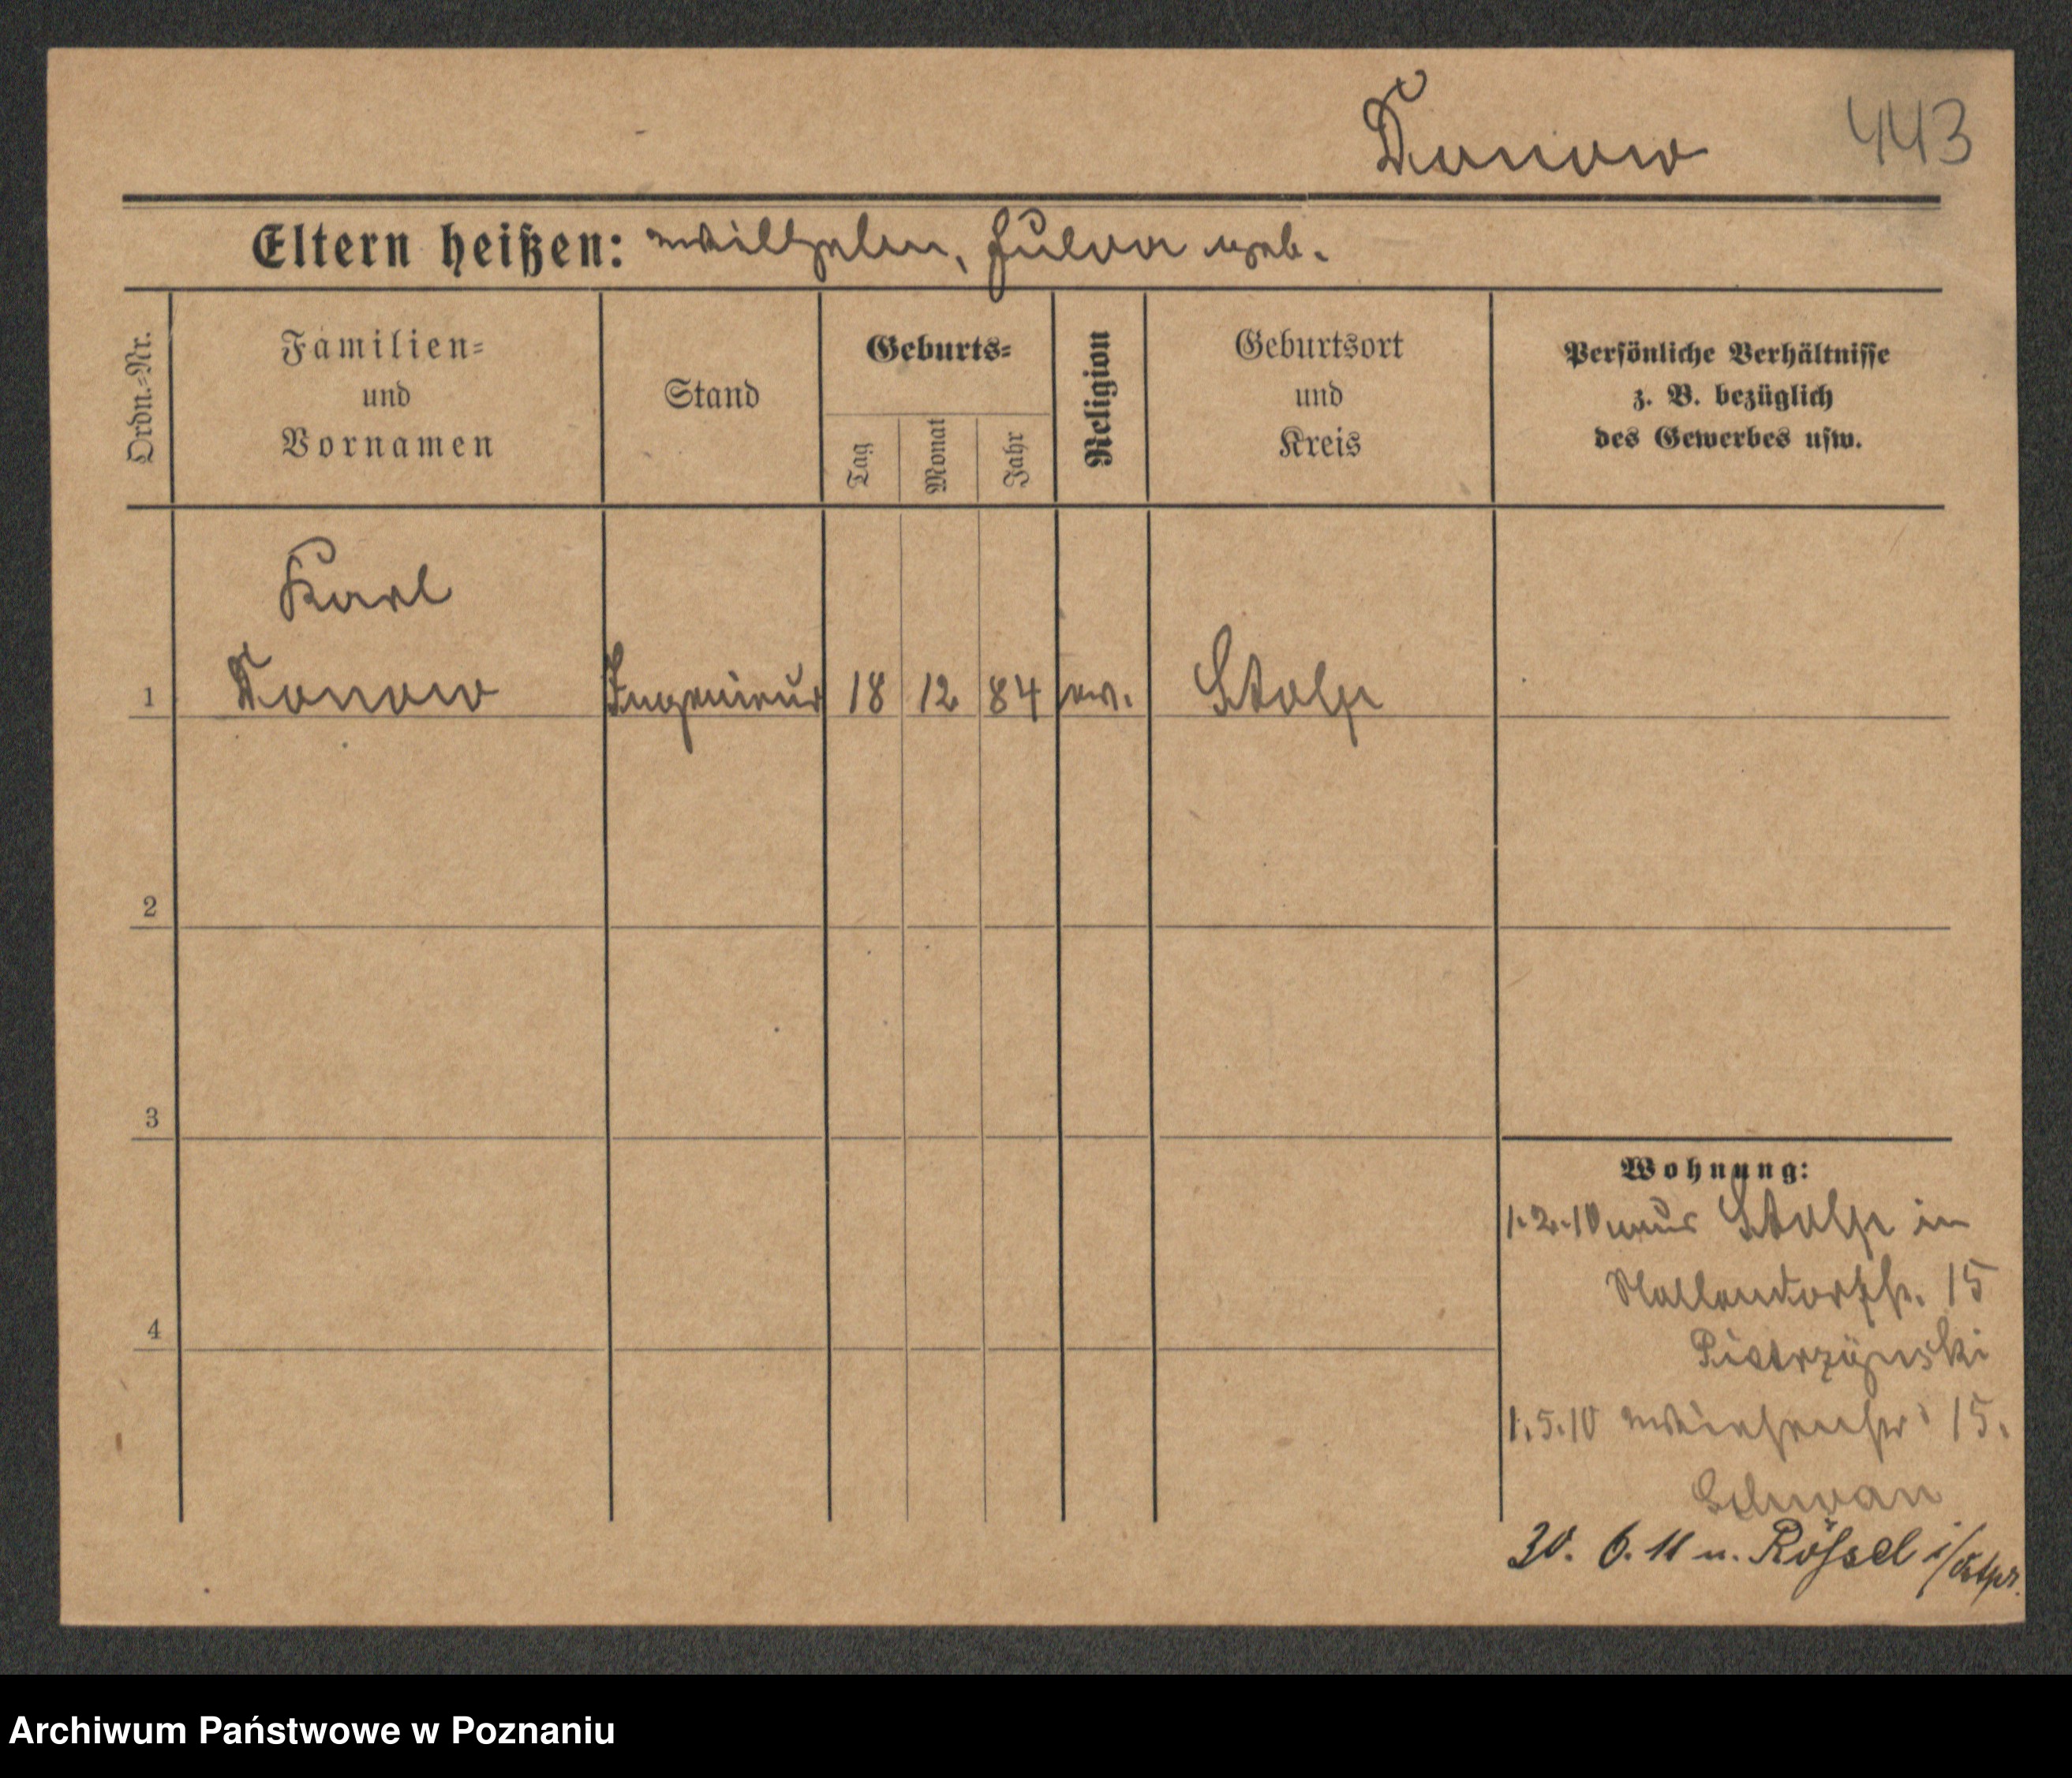 Donow 443
Eltern heißen: Wilhelm, Hulda geb.
Ordn.=Nr.
Familien=
und
Vornamen
Stand
Geburts=
Tag
Monat
Jahr
Religion
Geburtsort
und
Kreis
Persönliche Verhältnisse
z. B. bezüglich
des Gewerbes usw.
Karl
1 Donow Ingenieur 18 12 84 ev. Stolp
2
3
4
Wohnung:
1.2.10 aus Stolp in
15
1.5.10 15.
30. 6. 11 n. Rössel i/Ostpr.
Archiwum Państwowe w Poznaniu